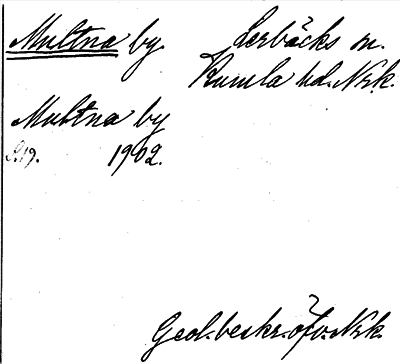 Multna by. Lerbäcks sn.
Kumla hd. Nrk.
Multna by
S. 19. 1902.
Geol. beskr. öfv. Nrk.